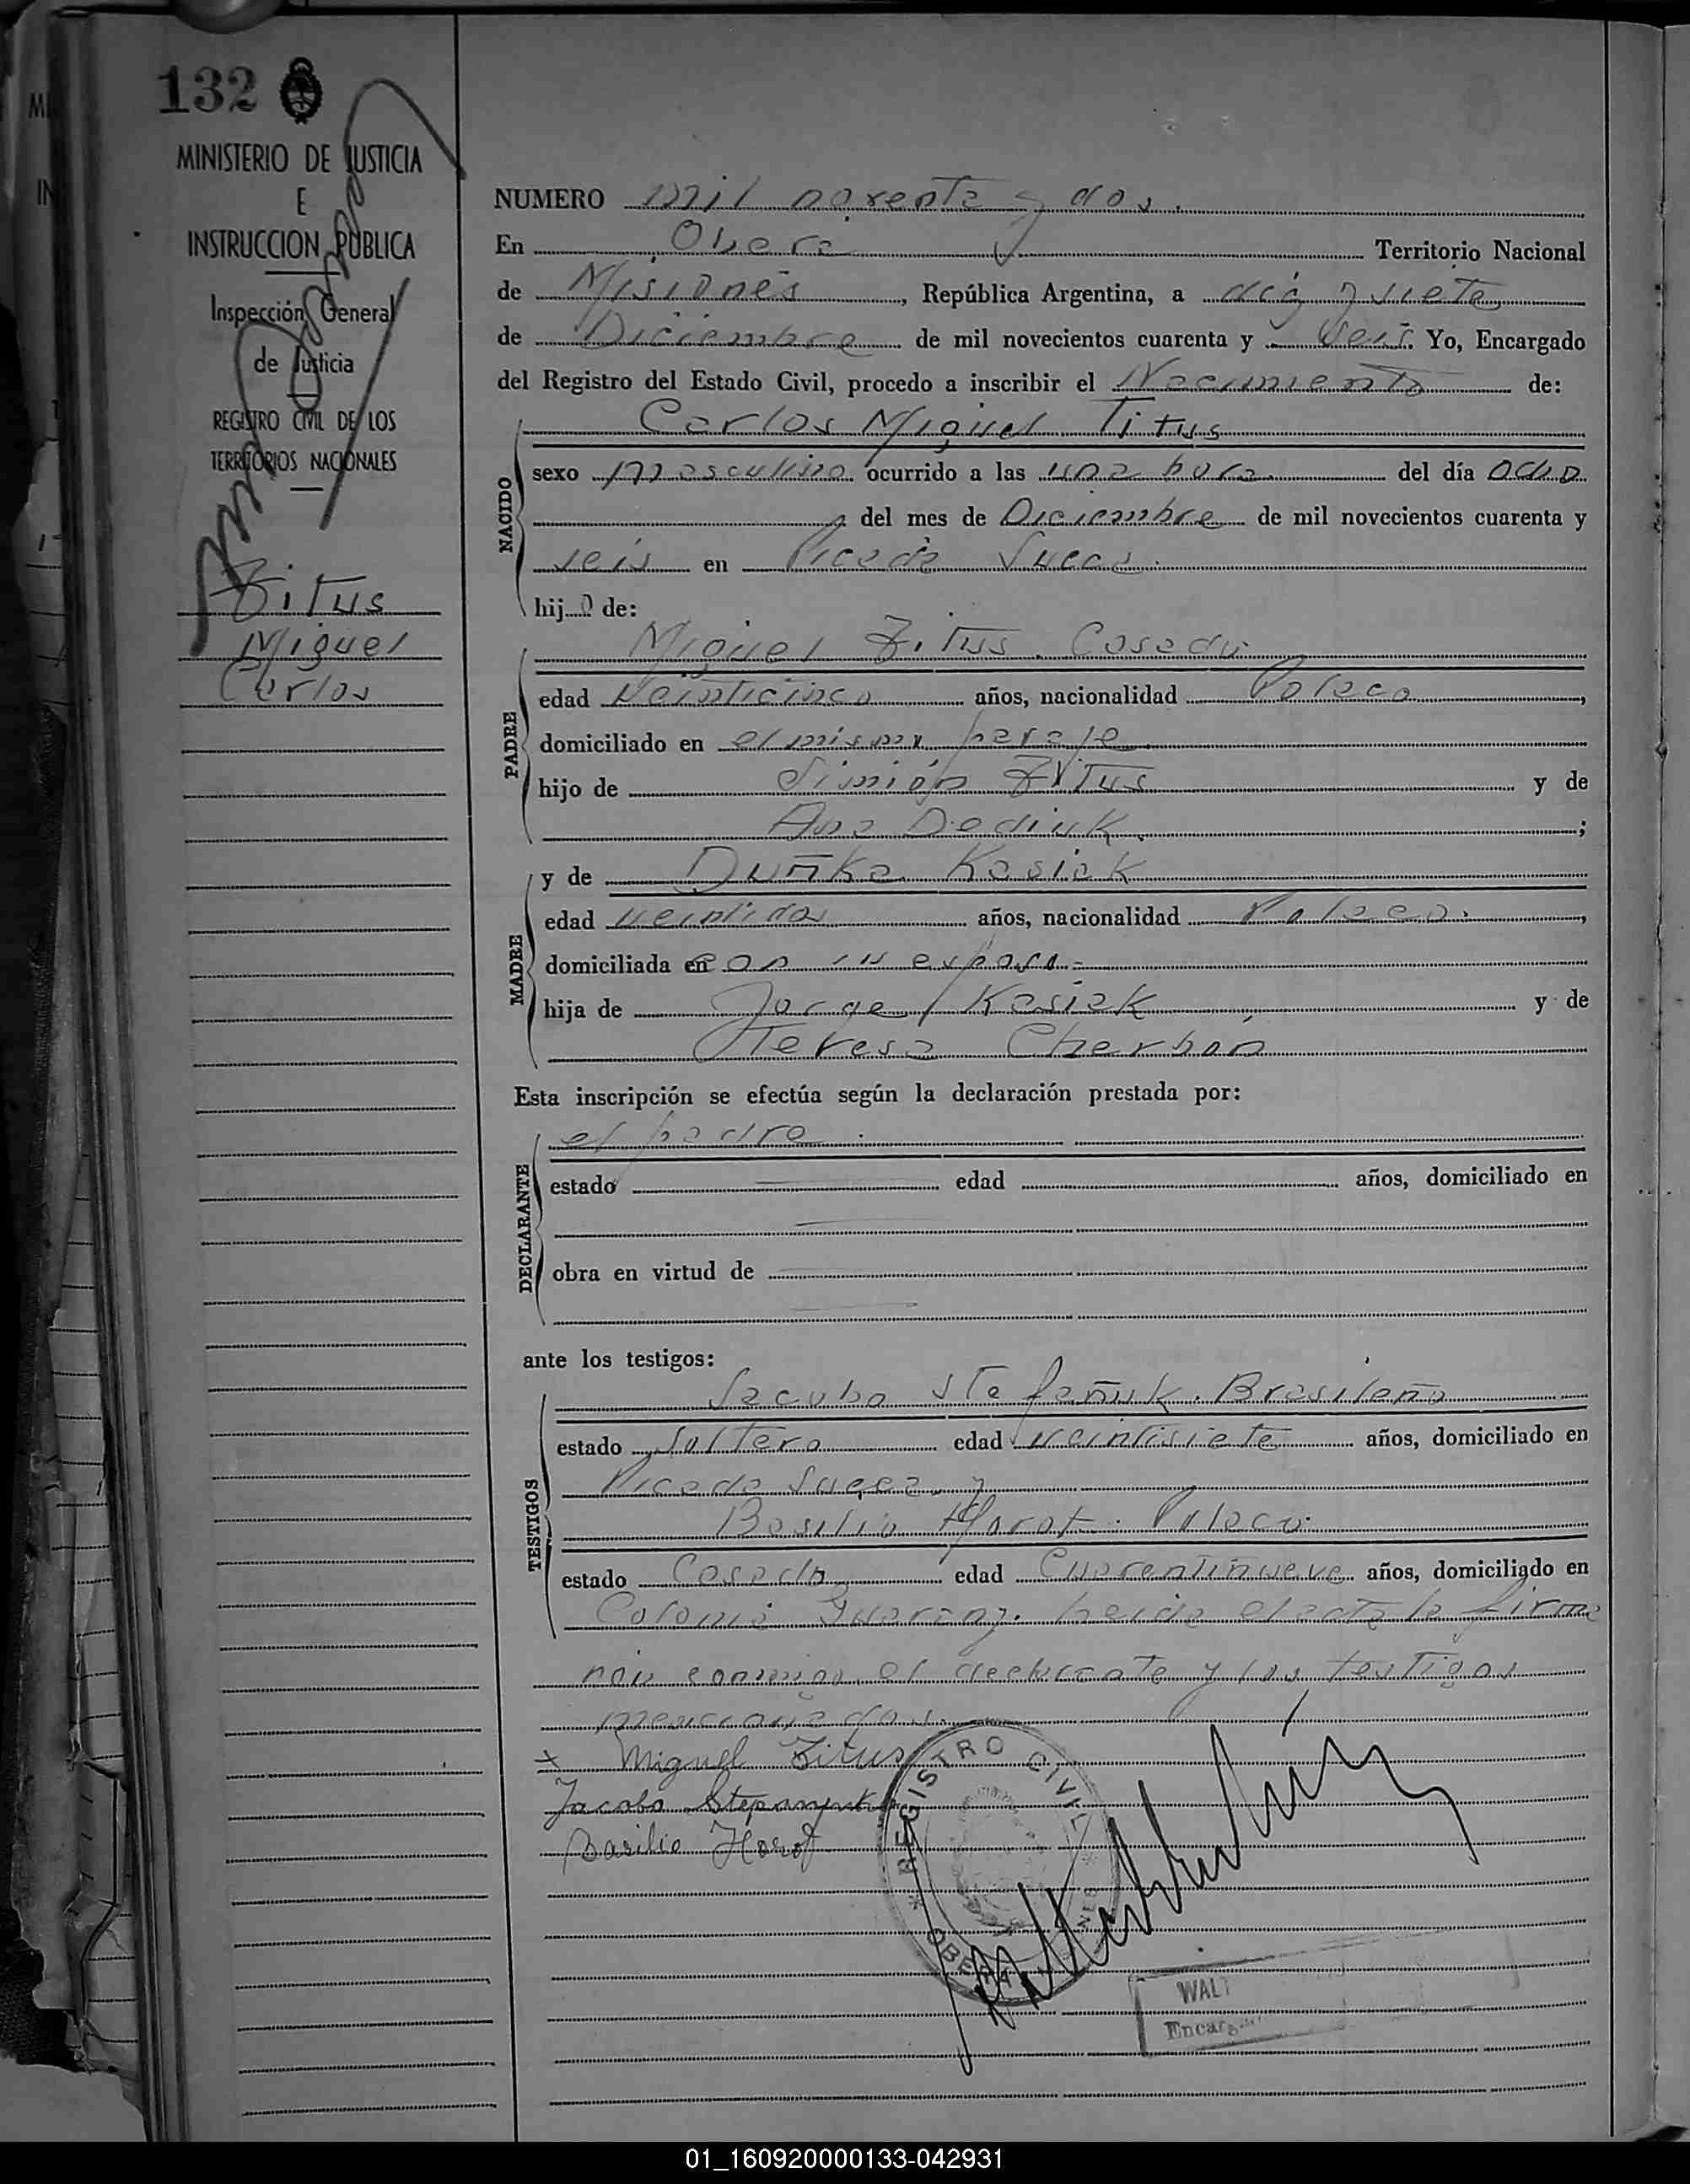 132
MINISTERIO DE JUSTICIA
E
INSTRUCCION PUBLICA
Inspección General
de Justicia
REGISTRO CIVIL DE LOS
TERRITORIOS NACIONALES
Zitus
Miguel
Carlos
NUMERO mil noventa y dos.
En Oberá Territorio Nacional
de Misiones, República Argentina, a diez y siete
de Diciembre de mil novecientos cuarenta y seis. Yo, Encargado
del Registro del Estado Civil, procedo a inscribir el Nacimiento de:
Carlos Miguel Titus
NACIDO
sexo masculino ocurrido a las una hora. del día ocho
del mes de Diciembre de mil novecientos cuarenta y
seis en Picada Sueca.
hijo de:
Miguel Zitus. Casado
PADRE
edad veinticinco años, nacionalidad Polaco,
domiciliado en el mismo paraje
hijo de Simión Zitus y de
Ana Dediuk;
y de Duñka Kasiak
MADRE
edad veintidos años, nacionalidad Polaca.,
domiciliada en con su esposo.-
hija de Jorge Kasiak y de
Teresa Cherbon
Esta inscripción se efectúa según la declaración prestada por:
el padre.
DECLARANTE
estado edad años, domiciliado en
obra en virtud de
ante los testigos:
Jacobo Stefañuk. Brasileño
TESTIGOS
estado Soltero edad veintisiete años, domiciliado en
Picada Sueca y
Basilio Horot. Polaco.
estado Casado edad Cuarentinueve años, domiciliado en
Colonia leida el acta la firma
ron conmigo el declarante y los testigos
mencionados.
x Miguel Zitus
Jacobo
Basilio
REGISTRO CIVIL
OBERA
WALT
Encarg
01_160920000133-042931